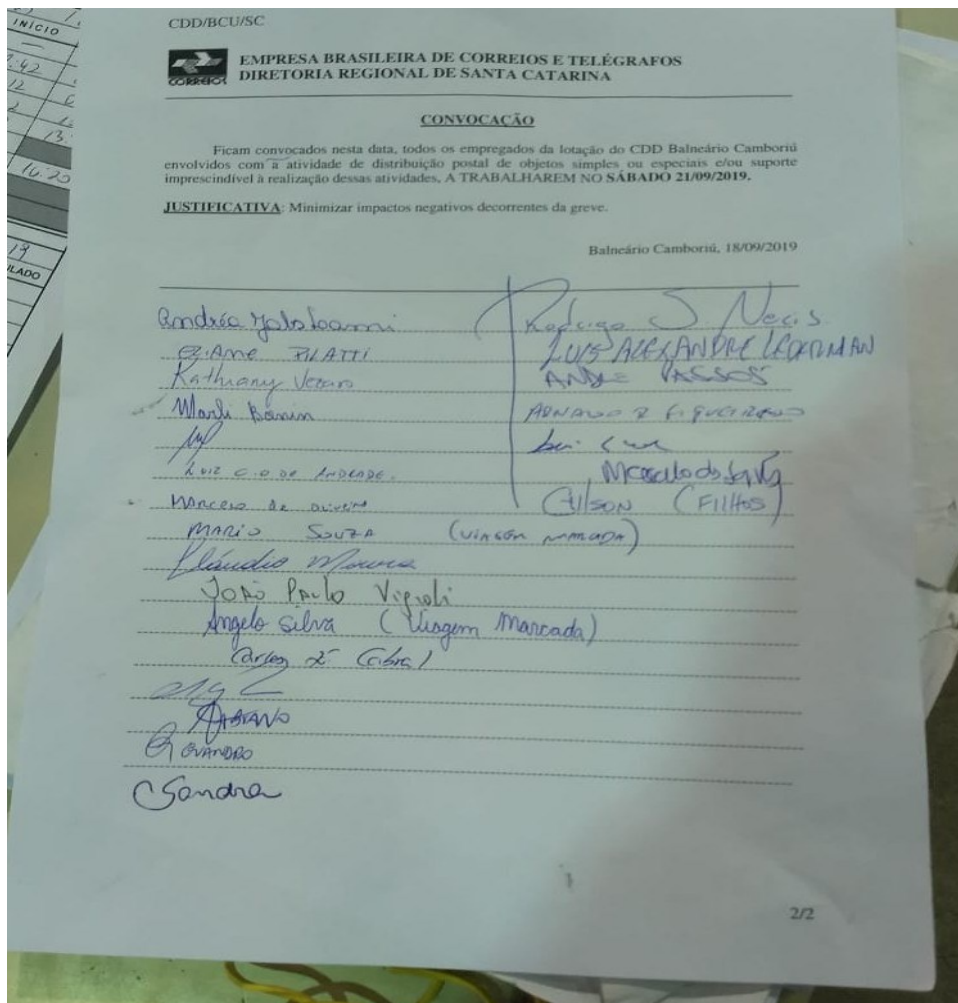 INÍCIO
CDD/BCU/SC
CORREIOS
EMPRESA BRASILEIRA DE CORREIOS E TELÉGRAFOS
DIRETORIA REGIONAL DE SANTA CATARINA
CONVOCAÇÃO
Ficam convocados nesta data, todos os empregados da lotação do CDD Balneário Camboriú
envolvidos com a atividade de distribuição postal de objetos simples ou especiais e/ou suporte
imprescindível à realização dessas atividades, A TRABALHAREM NO SÁBADO 21/09/2019.
JUSTIFICATIVA: Minimizar impactos negativos decorrentes da greve.
Balneário Camboriú, 18/09/2019
Andréa
PILATTI
Kathiany
Marli Bonin
LUIZ C.O DE ANDRADE.
Marcelo de Oliveira
MARIO SOUZA (VIAGEM MARCADA)
Cláudio Moura
JOÃO PAULO Vignoli
Angelo Silva (Viagem Marcada)
Carlos Cabral
FABIANO
EVANDRO
Sandra
Rodrigo S. Neris
LUIS ALEXANDRE LEDERMAN
ANDRE PASSOS
Marcelo da Silva
Gilson (FILHOS)
2/2